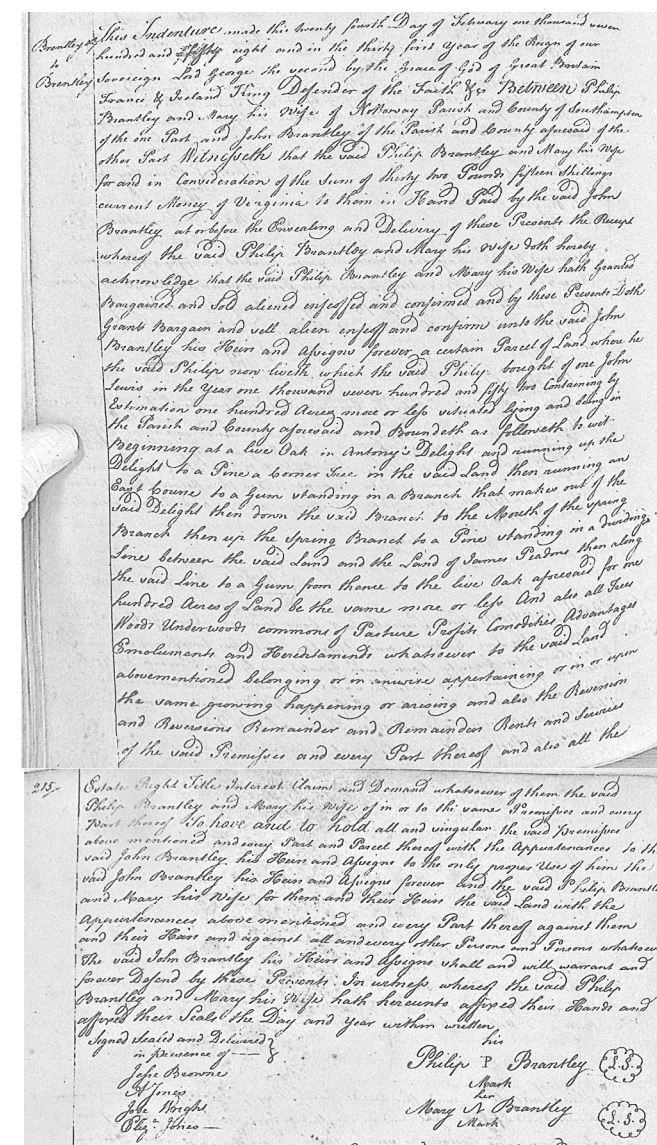 Brantley &c
to
Brantley
This Indenture made this twenty fourth Day of February one thousand seven
hundred and fifty eight and in the thirty first Year of the Reign of our
Sovereign Lord George the second by the Grace of God of Great Britain
France & Ireland King Defender of the Faith &c Between Philip
Brantley and Mary his Wife of Nottaway Parish and County of Southampton
of the one Part and John Brantley of the Parish and County aforesaid of the
other Part Witnesseth that the said Philip Brantley and Mary his Wife
for and in Consideration of the Sum of thirty two Pounds fifteen Shillings
current Money of Virginia to them in Hand Paid by the said John
Brantley at or before the Ensealing and Delivery of these Presents the Receipt
whereof the said Philip Brantley and Mary his Wife doth hereby
acknowledge that the said Philip Brantley and Mary his Wife hath Granted
Bargained and Sold aliened enfeoffed and confirmed and by these Presents Doth
Grant Bargain and sell alien enfeoff and confirm unto the said John
Brantley his Heirs and Assigns forever a certain Parcel of Land where he
the said Philip now liveth which the said Philip bought of one John
Lewis in the Year one thousand seven hundred and fifty two Containing by
Estimation one hundred Acres more or less situated lying and being in
the Parish and County aforesaid and Boundeth as followeth to wit
Beginning at a live Oak in Antony's Delight and running up the
Delight to a Pine a Corner Tree in the said Land then running an
East Course to a Gum standing in a Branch that makes out of the
said Delight then down the said Branch to the Mouth of the spring
Branch then up the Spring Branch to a Pine standing in a dividing
Line between the said Land and the Land of James Peadons then along
the said Line to a Gum from thence to the live Oak aforesaid for one
hundred Acres of Land be the same more or less And also all Trees
Woods Underwoods commons of Pasture Profits Comodities Advantages
Emoluments and Hereditaments whatsoever to the said Land
abovementioned belonging or in anywise appertaining or in or upon
the same growing happening or arising and also the Reversion
and Reversions Remainder and Remainders Rents and Services
of the said Premisses and every Part thereof and also all the
215/
Estate Right Title Interest Claim and Demand whatsoever of them the said
Philip Brantley and Mary his Wife of in or to the same Premisses and every
Part thereof To have and to hold all and singular the said Premisses
above mentioned and every Part and Parcel thereof with the Appurtenances to the
said John Brantley his Heirs and Assigns to the only proper Use of him the
said John Brantley his Heirs and Assigns forever and the said Philip Brantley
and Mary his Wife for them and their Heirs the said Land with the
Appurtenances above mentioned and every Part thereof against them
and their Heirs and against all and every other Persone and Persons whatsoever
The said John Brantley his Heirs and Assigns shall and will warrant and
forever Defend by these Presents. In witness whereof the said Philip
Brantley and Mary his Wife hath hereunto affixed their Hands and
affixed their Seals the Day and Year within written
Signed Sealed and Delivered
in presence of
Jesse Browne
A Jones
Jobe Wright
Jones
his
Philip P Brantley L.S.
Mark
her
Mary N Brantley L.S.
Mark